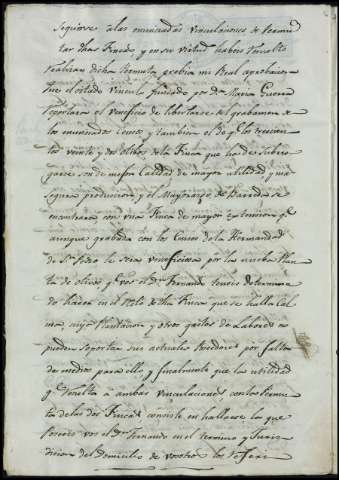 seguirse á las enunciadas vinculaciones de permu
tar dhas Fincas, y en su virtud haveis resuelto
realizar dicha Permuta, prebia mi Real aprobacion
pues el citado vinculo fundado por Dª Maria Guerra
reportara el veneficio de libertarse del grabamen de
los enunciados Censos, y tambien el de que los trecien
tos veinte y dos olibos de la Finca que ha de subro
garse son de mejor calidad de mayor utilidad, y ma
yor produccion, y el Mayorazgo de se
encontrara con una Finca de mayor extension que
aunque grabada con los Censos de la Hermandad
de Sn Pedro le sera veneficiosa por la nueba Plan
ta de olivos que vos el Dn Fernando teneis determina
do hacer en el resto de dha Finca que se halla Cal
ma, cuya Plantacion y otros gastos de Labores no
pueden soportar sus actuales Poedores por falta
de medios para ello, y finalmente que la utilidad
que resulta á ambas vinculaciones con la Permu
ta de las dos Fincas consiste en hallarse las que
poseeis vos el Dn Fernando en el termino y Juris
diccion del Domicilio de vosotros los